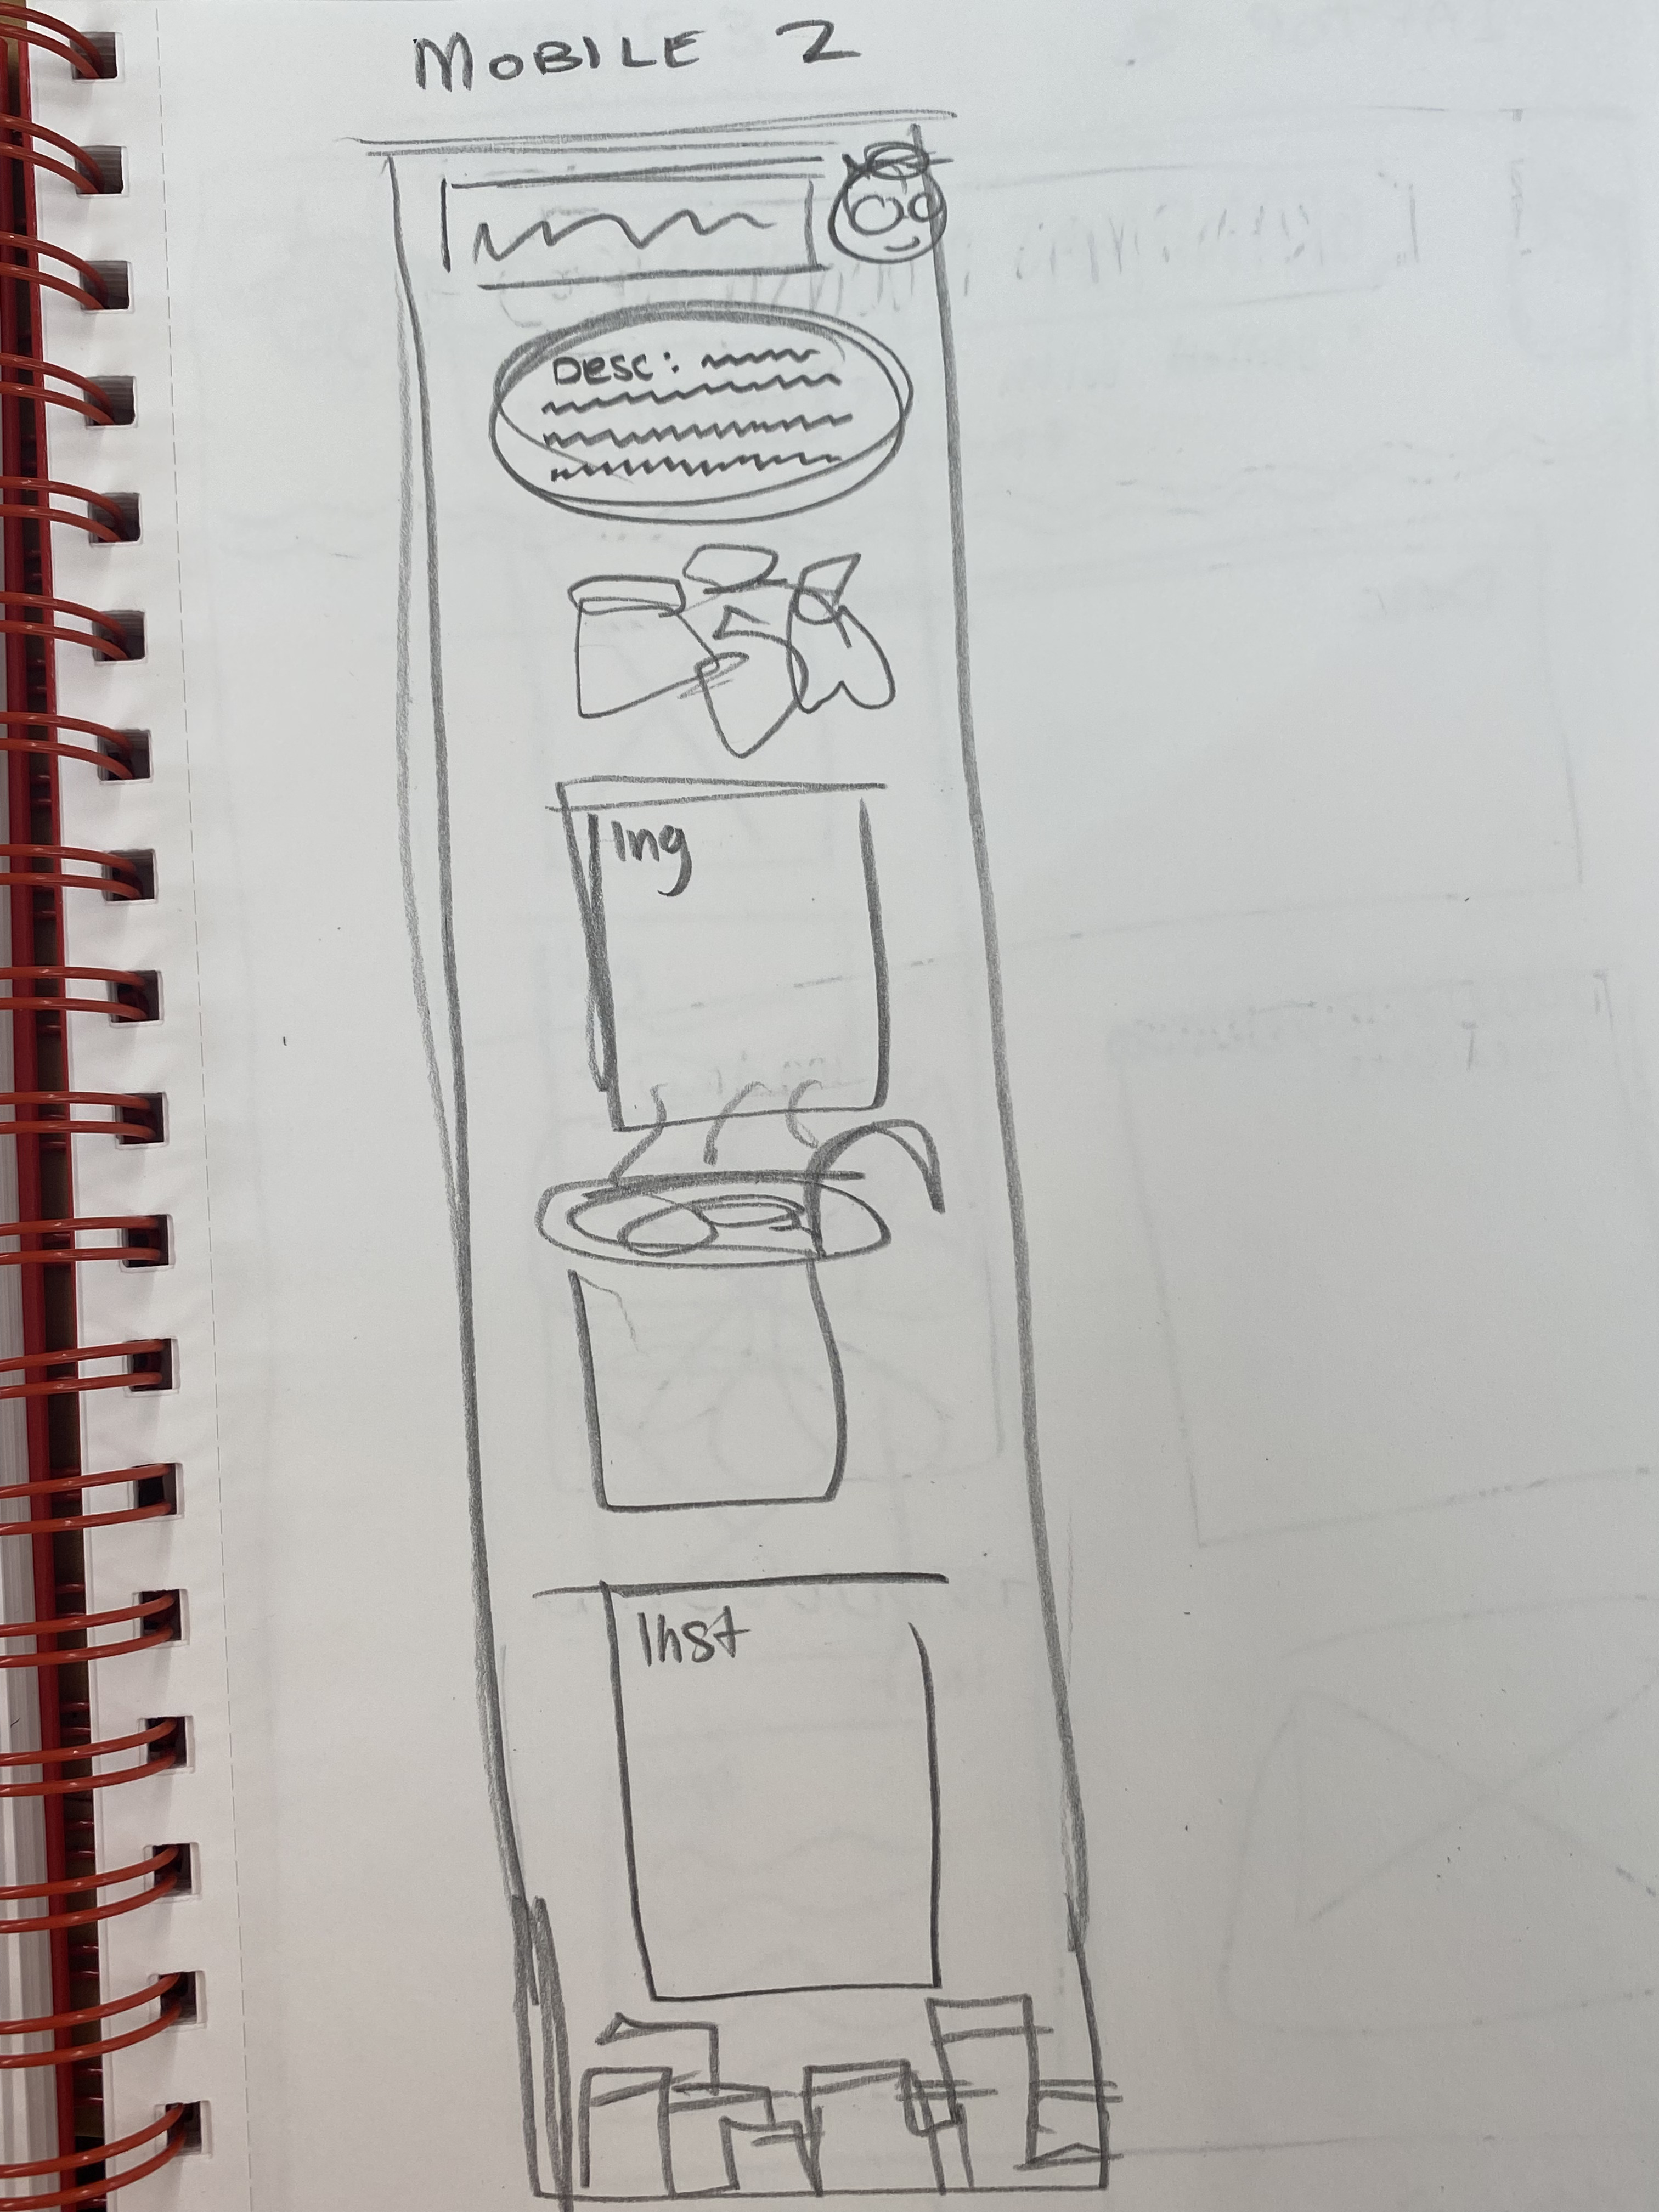 MOBILE 2
Desc:
Ing
Inst